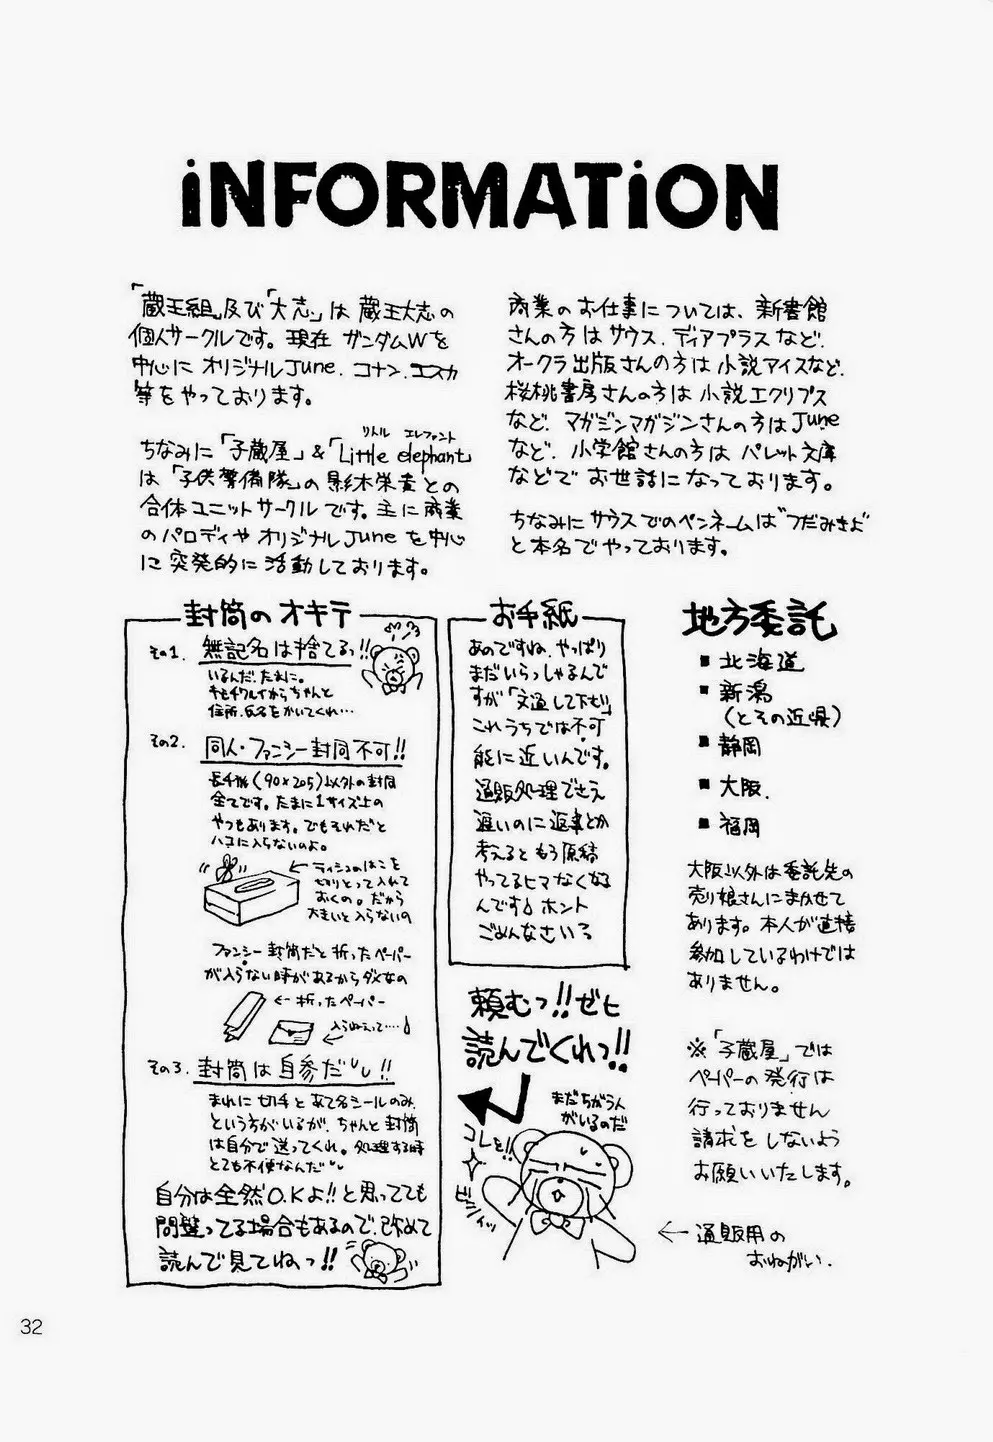 iNFORMATiON
「蔵王組」及び「大志」は 蔵王大志の
個人サークルです。現在 ガンダムWを
中心に オリジナルJune. コナン. エスカ
等をやっております。
リトル エレファント
ちなみに「子蔵屋」&「Little elephant」
は「子供警備隊」の影木栄貴との
合体ユニットサークルです。主に商業
のパロディやオリジナルJuneを中心
に突発的に活動しております。
商業のお仕事については、新書館
さんの方はサウス. ディアプラスなど.
オークラ出版さんの方は小説アイスなど.
桜桃書房さんの方は小説エクリプス
など. マガジンマガジンさんの方はJune
など. 小学館さんの方はパレット文庫
などでお世話になっております。
ちなみにサウスでのペンネームは"つだみきよ"
と本名でやっております。
封筒のオキテ
その1. 無記名は捨てるっ!!
いるんだ.たまに。
キモチワルイからちゃんと
住所.氏名をかいてくれ…
その2. 同人・ファンシー封筒不可!!
長4㍉(90×205)以外の封筒
全てです。たまに1サイズ上の
やつもあります。でもそれだと
ハコに入らないのよ。
←ティシュのはこを
切りとって入れて
おくの。だから
大きいと入らないの
ファンシー封筒だと折ったペーパー
が入らない時があるからダメなの
←折ったペーパー
入らねえって…
その3. 封筒は自参だ!!
まれに切手とあて名シールのみ.
という方がいるが、ちゃんと封筒
は自分で送ってくれ。処理する時
とても不便なんだ
自分は全然O.Kよ!!と思ってても
間違ってる場合もあるので、改めて
読んで見てねっ!!
お手紙
あのですね、やっぱり
まだいらっしゃるんで
すが「文通して下さい」
これうちでは不可
能に近いんです。
通販処理でさえ
遅いのに返事とか
考えるともう原稿
やってるヒマなくなる
んです♪ホント
ごめんなさいっ
頼むっ!!ゼヒ
読んでくれっ!!
まだちがう人
がいるのだ
コレを!!
地方委託
■北海道
■新潟
(とその近県)
■静岡
■大阪.
■福岡
大阪以外は委託先の
売り娘さんにまかせて
あります。本人が直接
参加しているわけでは
ありません。
※「子蔵屋」では
ペーパーの発行は
行っておりません
請求をしないよう
お願いいたします。
←通販用の
おねがい.
32